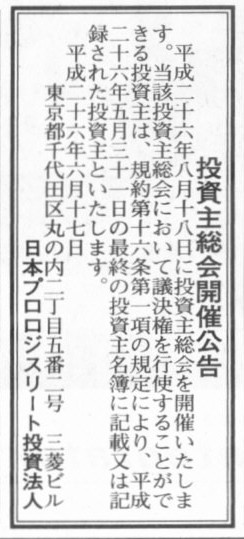 投資主総会開催公告
平成二十六年八月十八日に投資主総会を開催いたしま
す。当該投資主総会において議決権を行使することがで
きる投資主は、規約第十六条第一項の規定により、平成
二十六年五月三十一日の最終の投資主名簿に記載又は記
録された投資主といたします。
平成二十六年六月十七日
東京都千代田区丸の内二丁目五番二号 三菱ビル
日本プロロジスリート投資法人